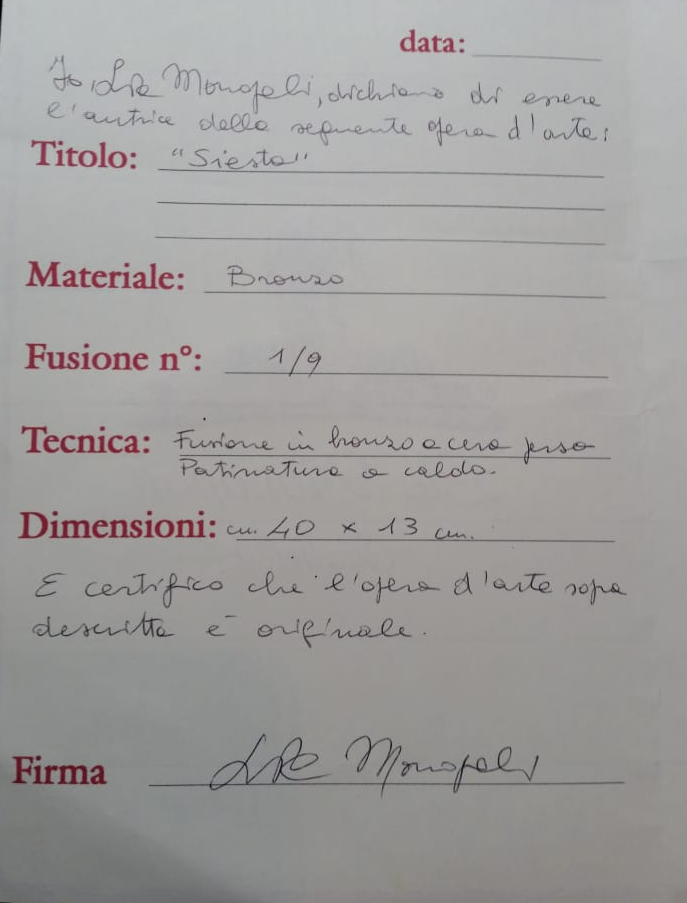 data:
Io, Lia Monopoli, dichiaro di essere
l'autrice della seguente opera d'arte:
Titolo: "Siesta"
Materiale: Bronzo
Fusione n°: 1/9
Tecnica: Fusione in bronzo a cera persa
Patinatura a caldo.
Dimensioni: cm. 40 x 13 cm.
E certifico che l'opera d'arte sopra
descritta è originale.
Firma Lia Monopoli